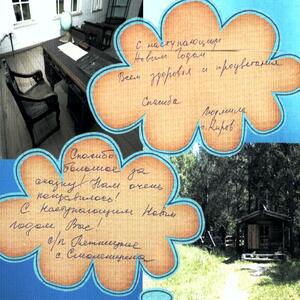 С наступающим
Новым Годом
Всем здоровья и процветания
Спасибо
Людмила
г. Киров
Спасибо
большое за
сказку! Нам очень
понравилось!
С Наступающим Новым
годом Вас!
с.